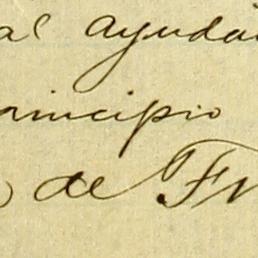 al ayuda
principio
de Fr